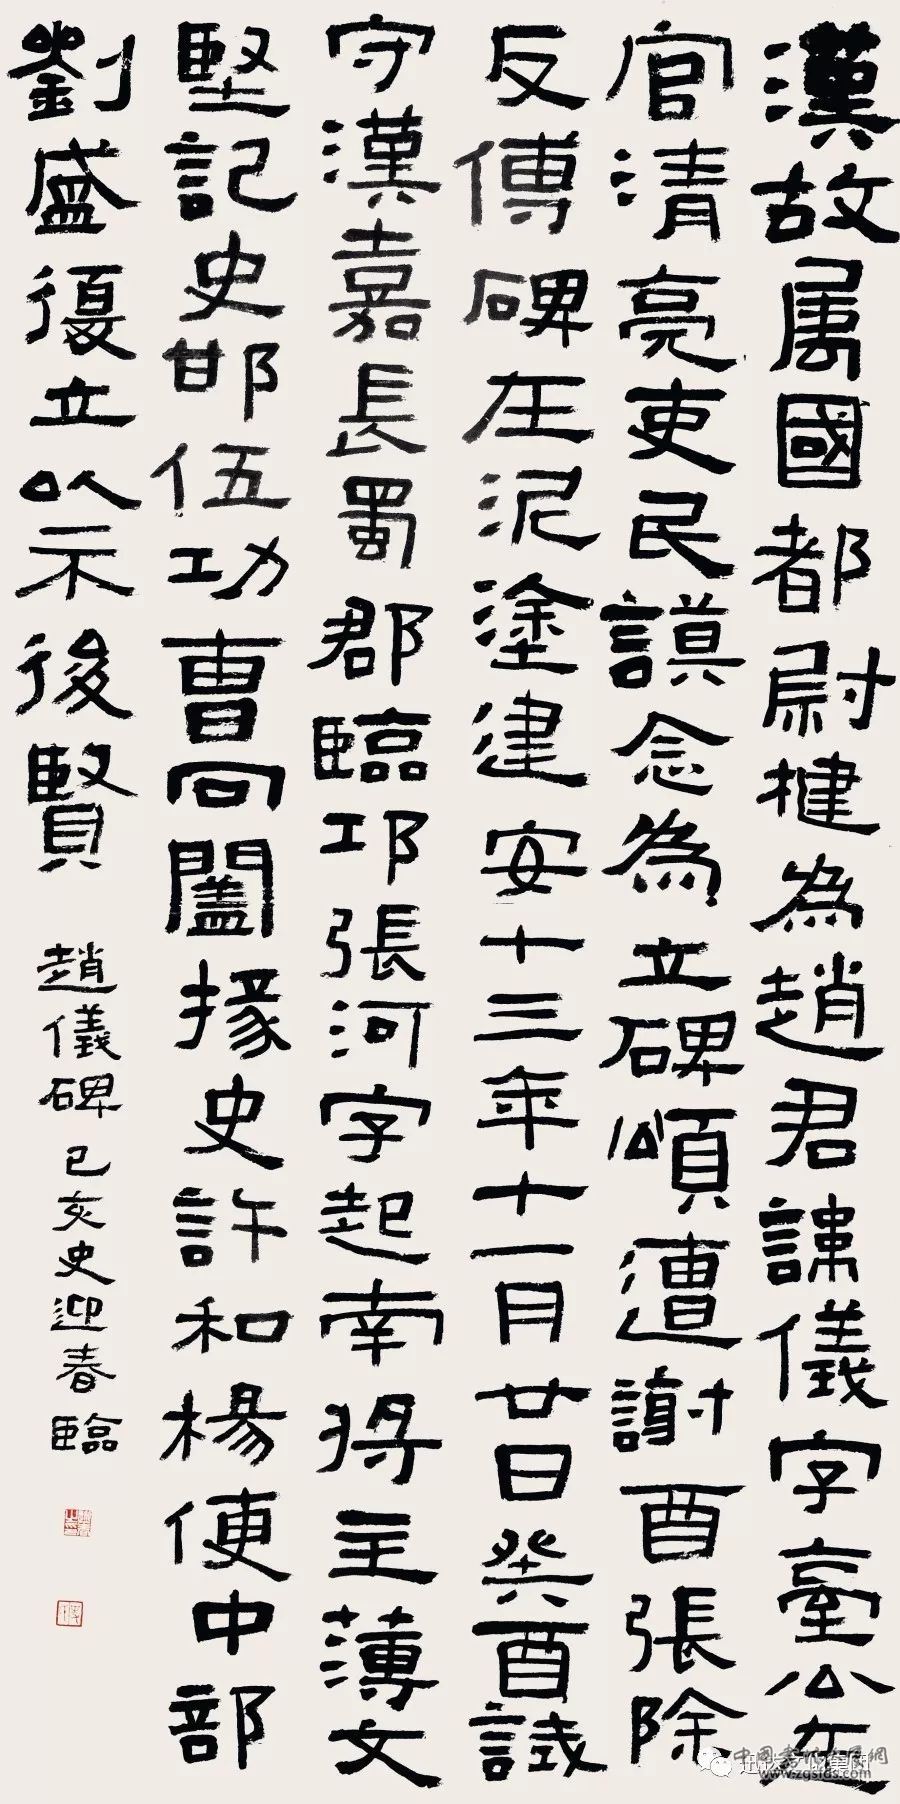 漢故属國都尉楗為趙君諱儀字臺公在
官清亮吏民謨念為立碑頌遭謝酉張除
反傅碑在泥塗建安十三年十一月廿日癸酉試
守漢嘉長蜀郡臨邛張河字起南將主薄文
堅記史邯伍功曹向闔掾史許和楊便中部
劉盛復立以示後賢
趙儀碑己亥史迎春臨
www.zgsfds.com